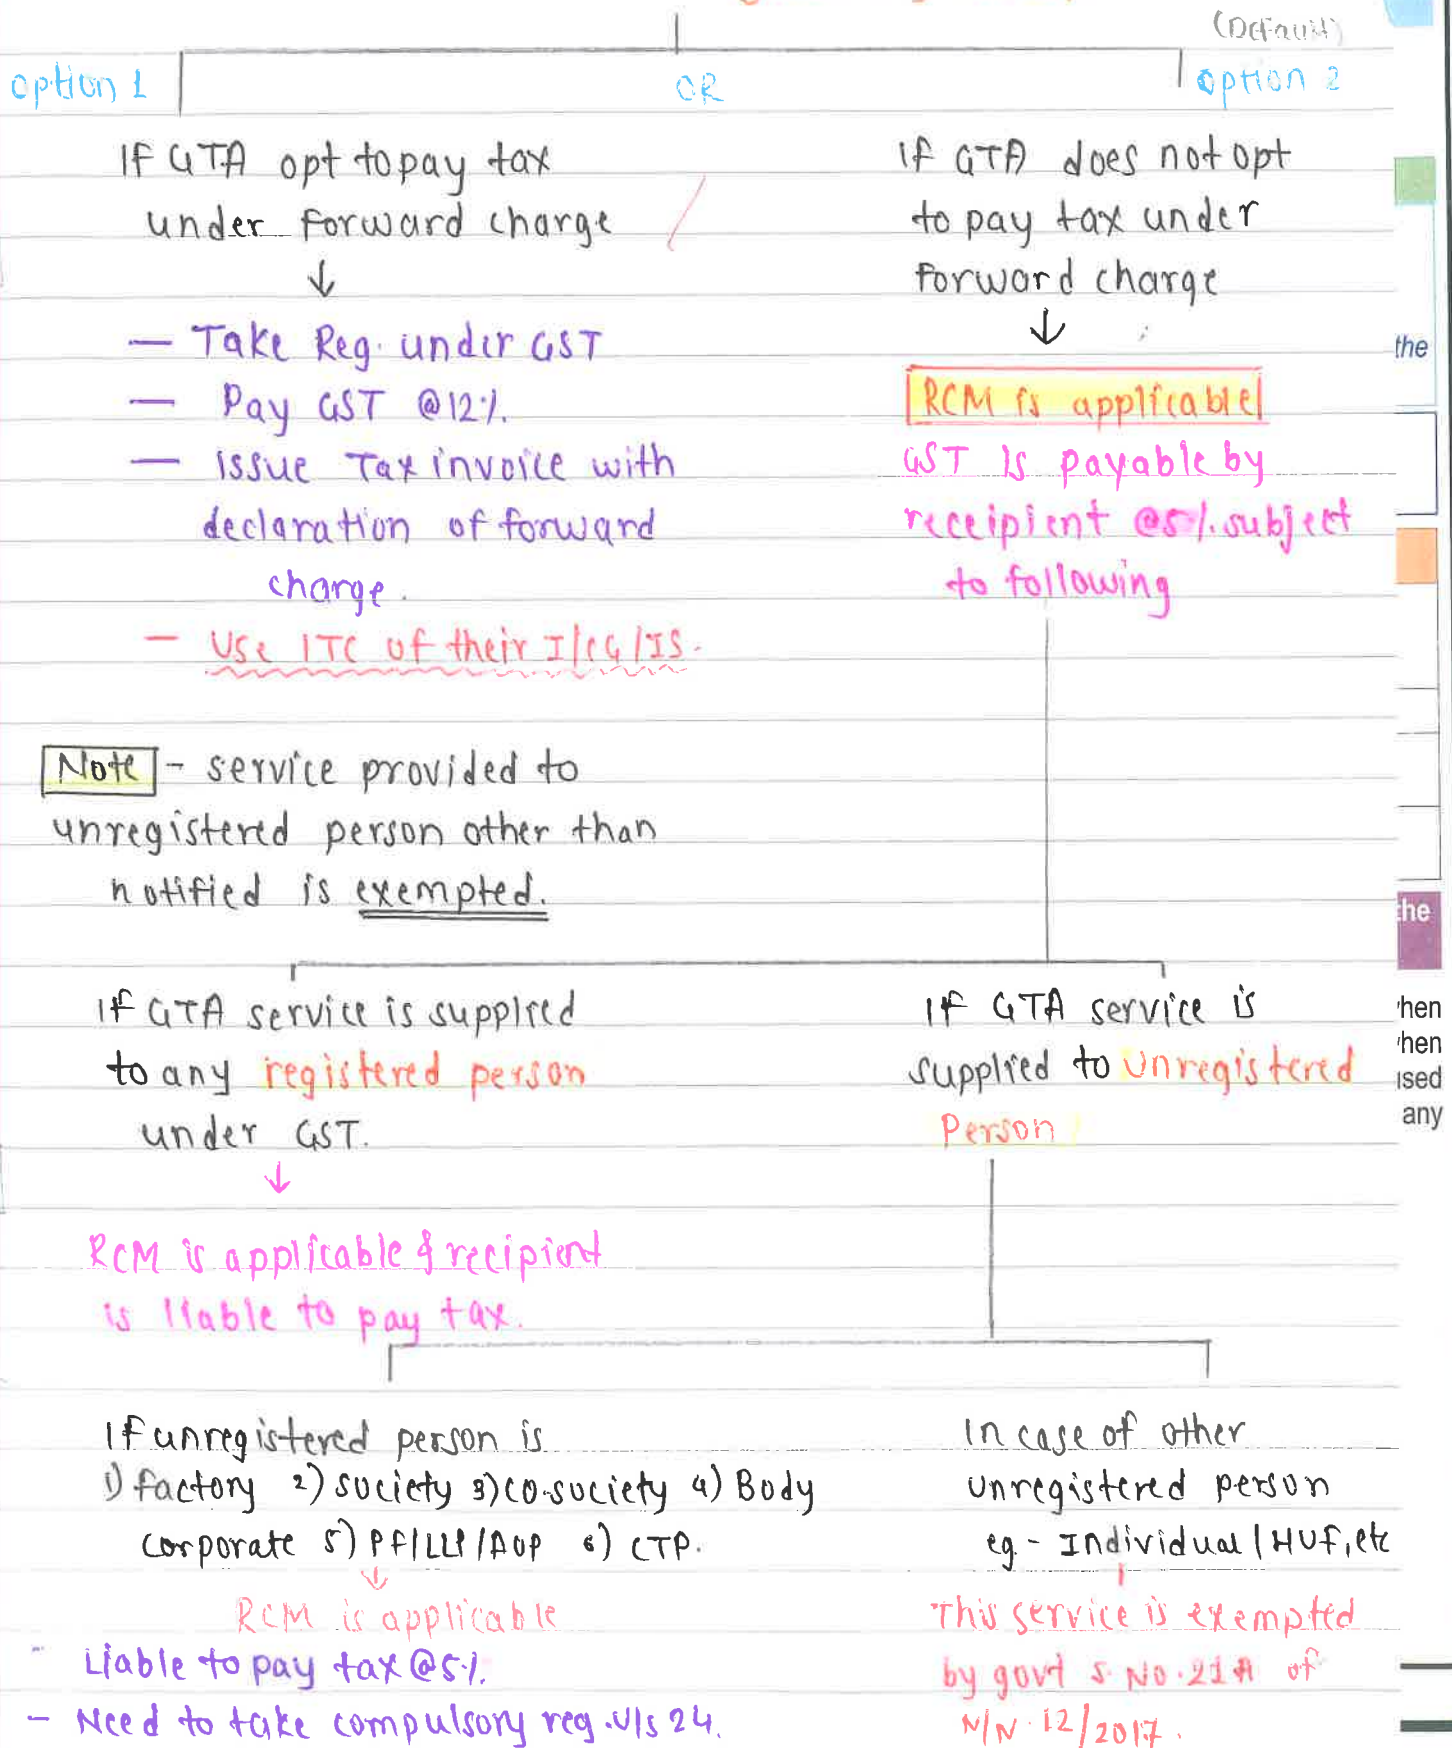 (Default)
option 1
OR
option 2
If GTA opt to pay tax
under forward charge
↓
— Take Reg. under GST
— Pay GST @12%.
— issue Tax invoice with
declaration of forward
charge.
— Use ITC of their I/CG/IS.
If GTA does not opt
to pay tax under
forward charge
↓
RCM is applicable
GST is payable by
receipient @5%. subject
to following
Note - service provided to
unregistered person other than
notified is exempted.
If GTA service is supplied
to any registered person
under GST.
↓
RCM is applicable & recipient
is liable to pay tax.
If GTA service is
supplied to unregistered
Person
If unregistered person is
1) factory 2) society 3) co-society 4) Body
corporate 5) PF/LLP/AOP 6) CTP.
↓
RCM is applicable
- Liable to pay tax @5%.
- Need to take compulsory reg. U/s 24.
In case of other
unregistered person
eg - Individual / HUF, etc
This service is exempted
by govt S. No. 21A of
N/N. 12/2017.
the
the
hen
hen
ised
any